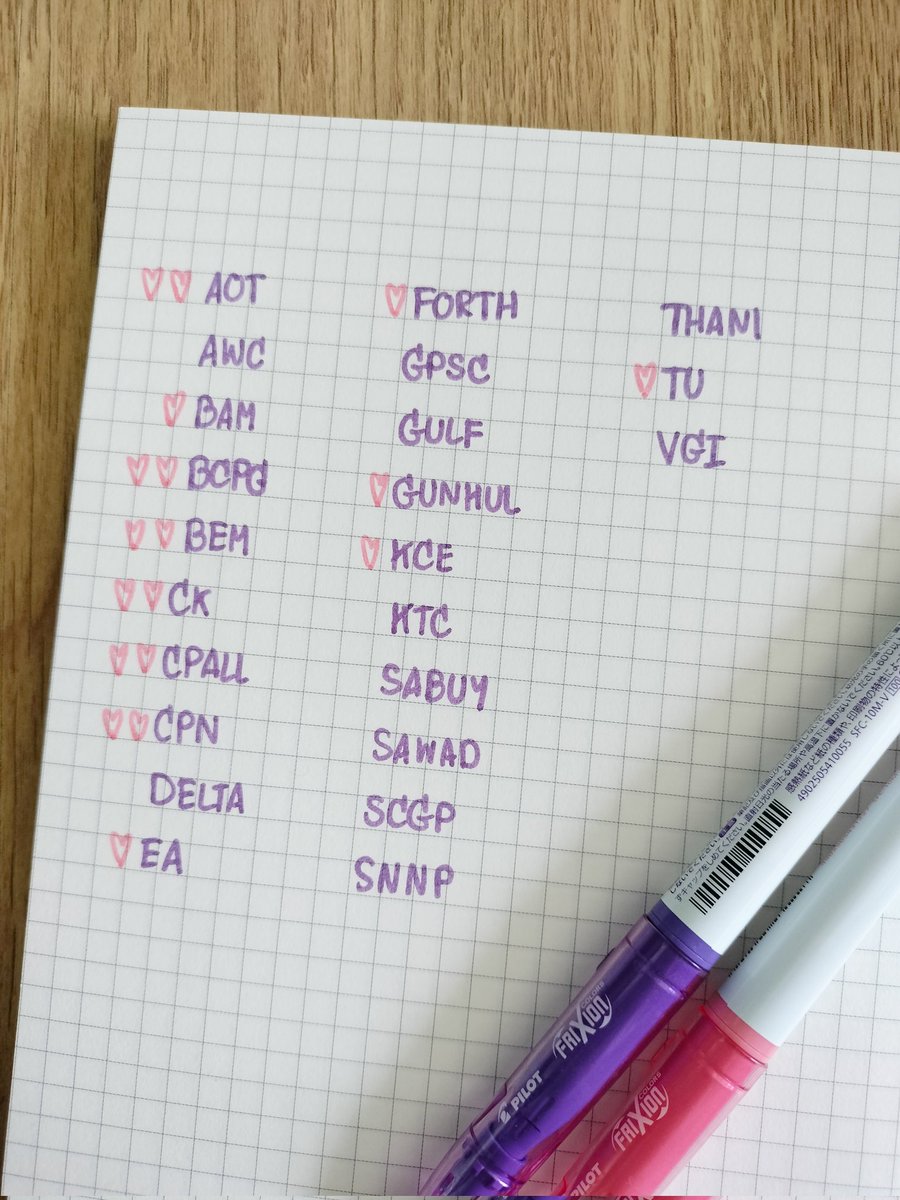 ♡♡ AOT
AWC
♡ BAM
♡♡ BCPG
♡♡ BEM
♡♡ CK
♡♡ CPALL
♡♡ CPN
DELTA
♡ EA
♡ FORTH
GPSC
GULF
♡ GUNHUL
♡ KCE
KTC
SABUY
SAWAD
SCGP
SNNP
THANI
♡ TU
VGI
4902505410055 SFC-10M-V
PILOT FRIXION COLORS
PILOT FRIXION COLORS